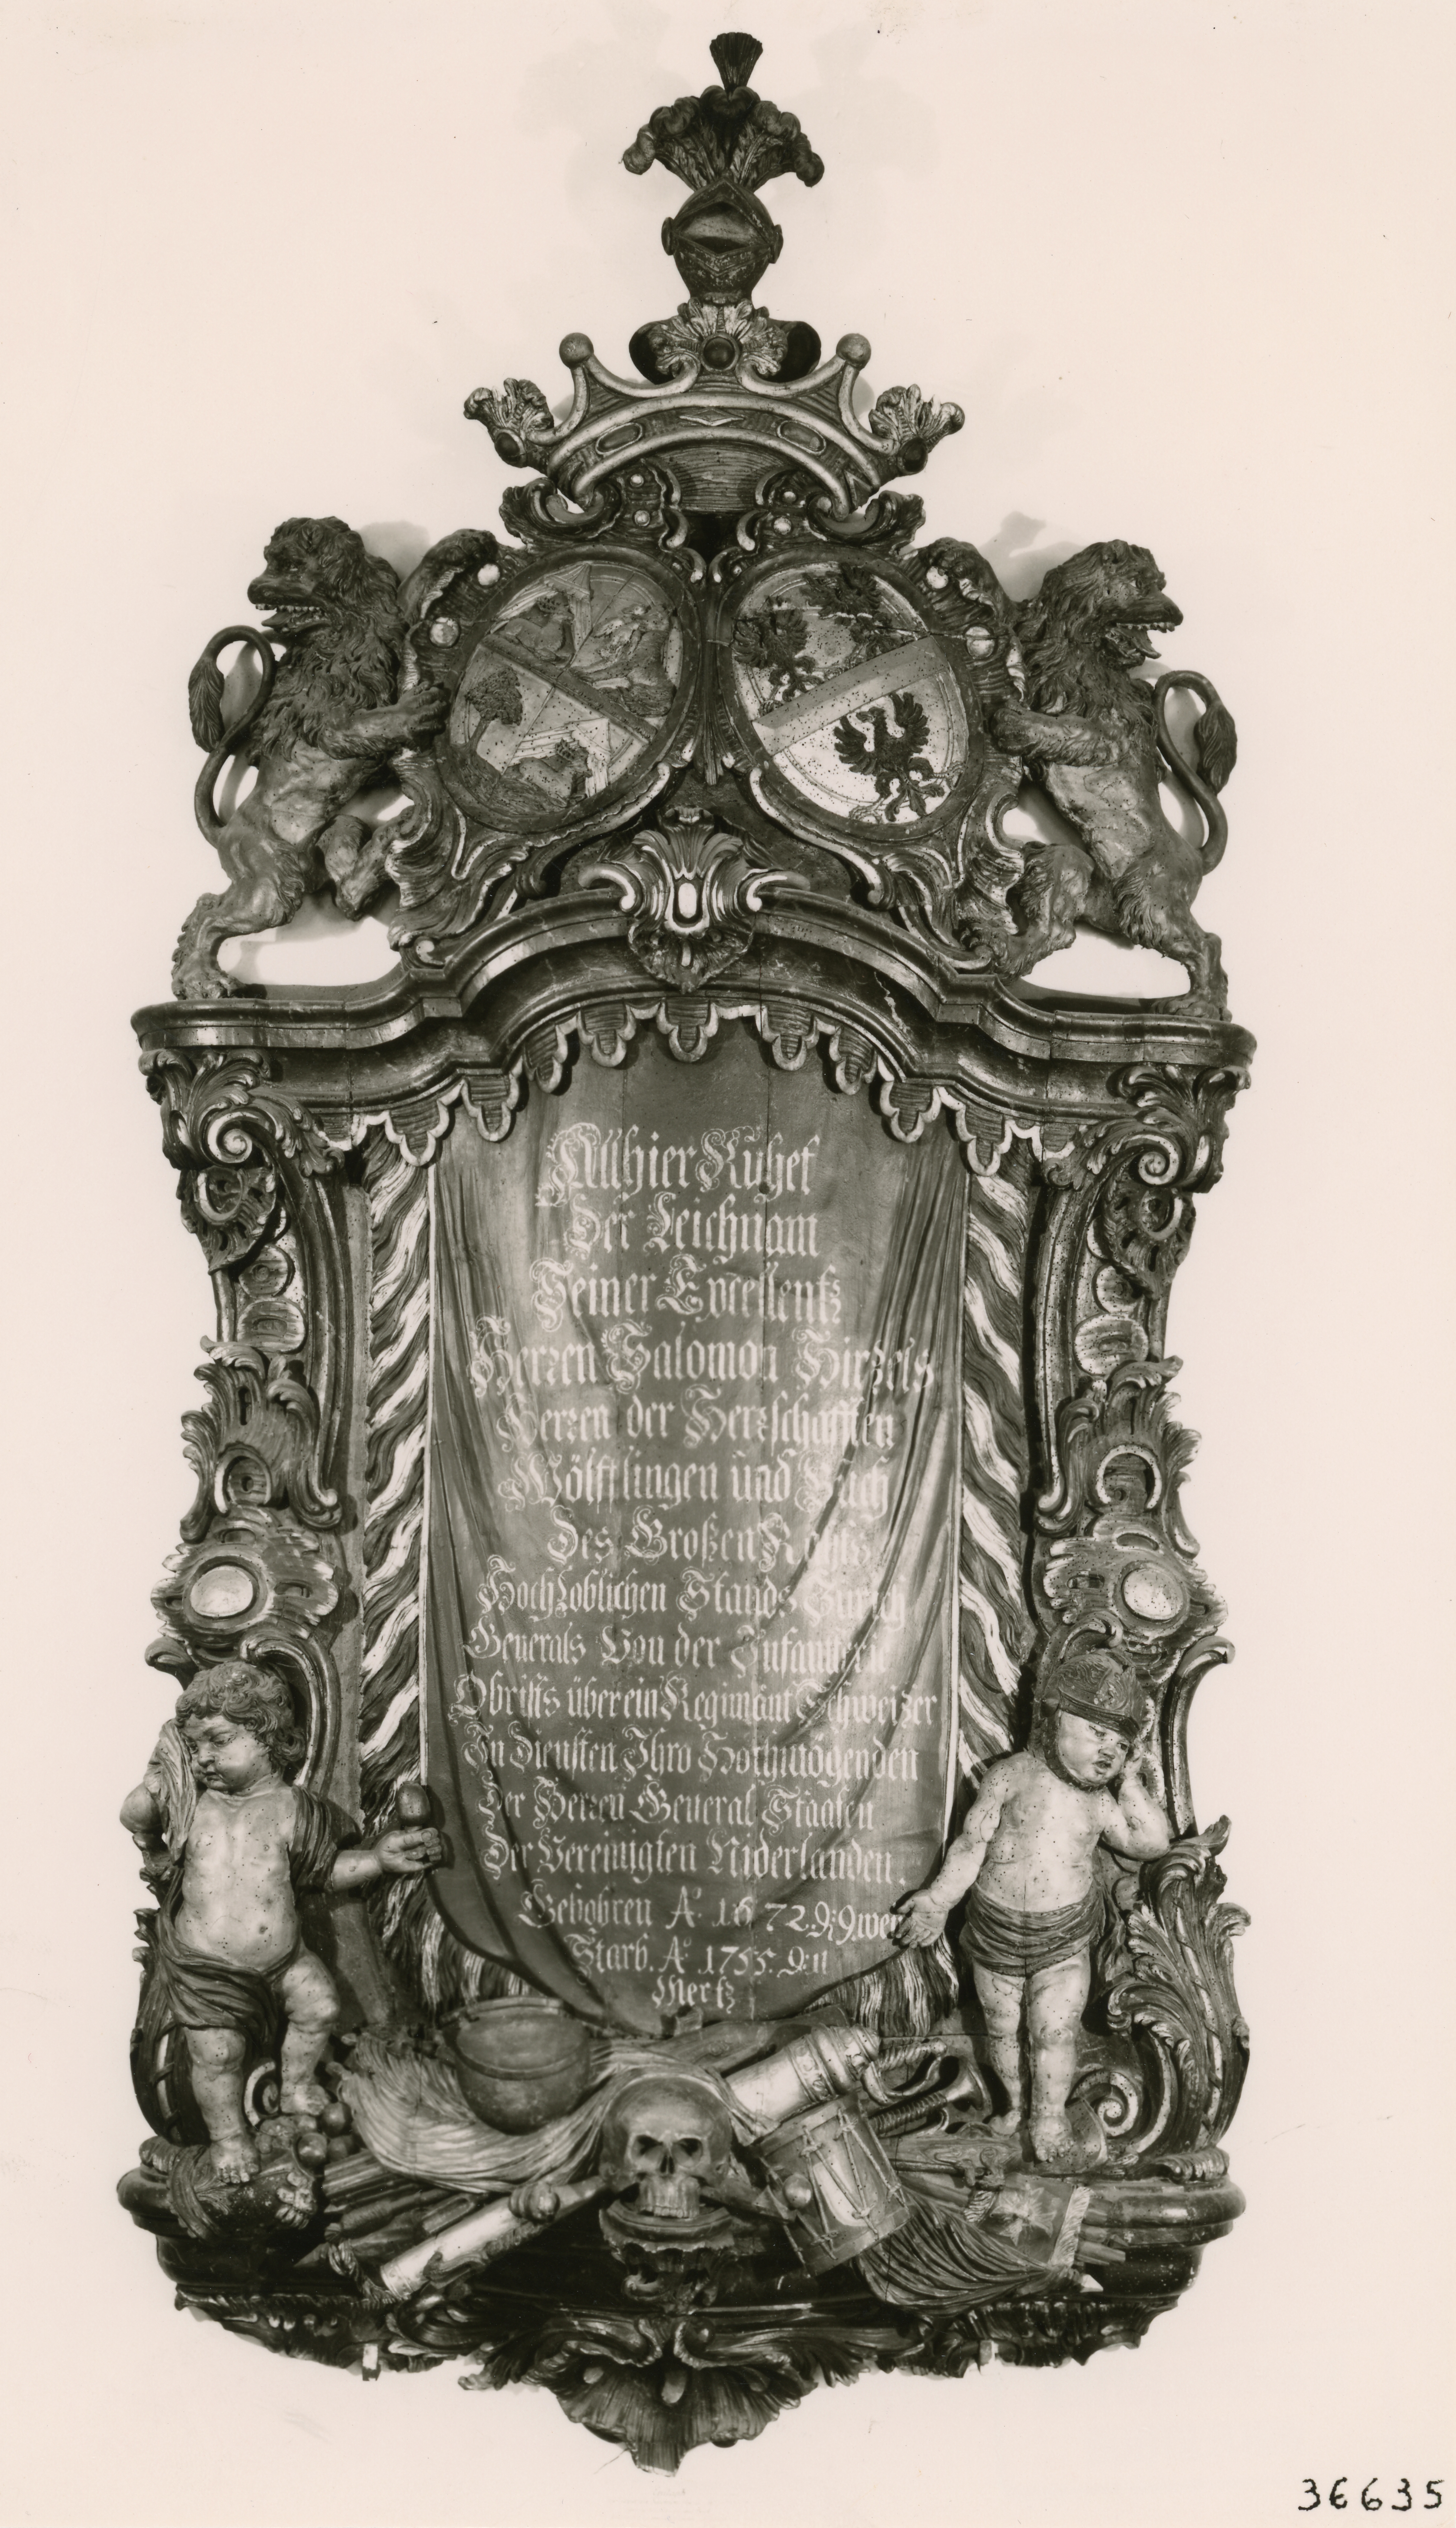 Allhier Ruhet
Der Leichnam
Seiner Excellentz
Herren Salomon Hirzels
Herren der Herrschafften
Wölfflingen und Buch
Des Großen Raths
Hochloblichen Stands Zürich
Generals Von der Infanteri
Obrists über ein Regimänt Schweitzer
In Diensten Ihro Hochmögenden
Der Herren General Staaten
Der Vereinigten Niderlanden.
Gebohren Aº 1672. D: 9.
Starb. Aº 1755. D: 11
Mertz
36635